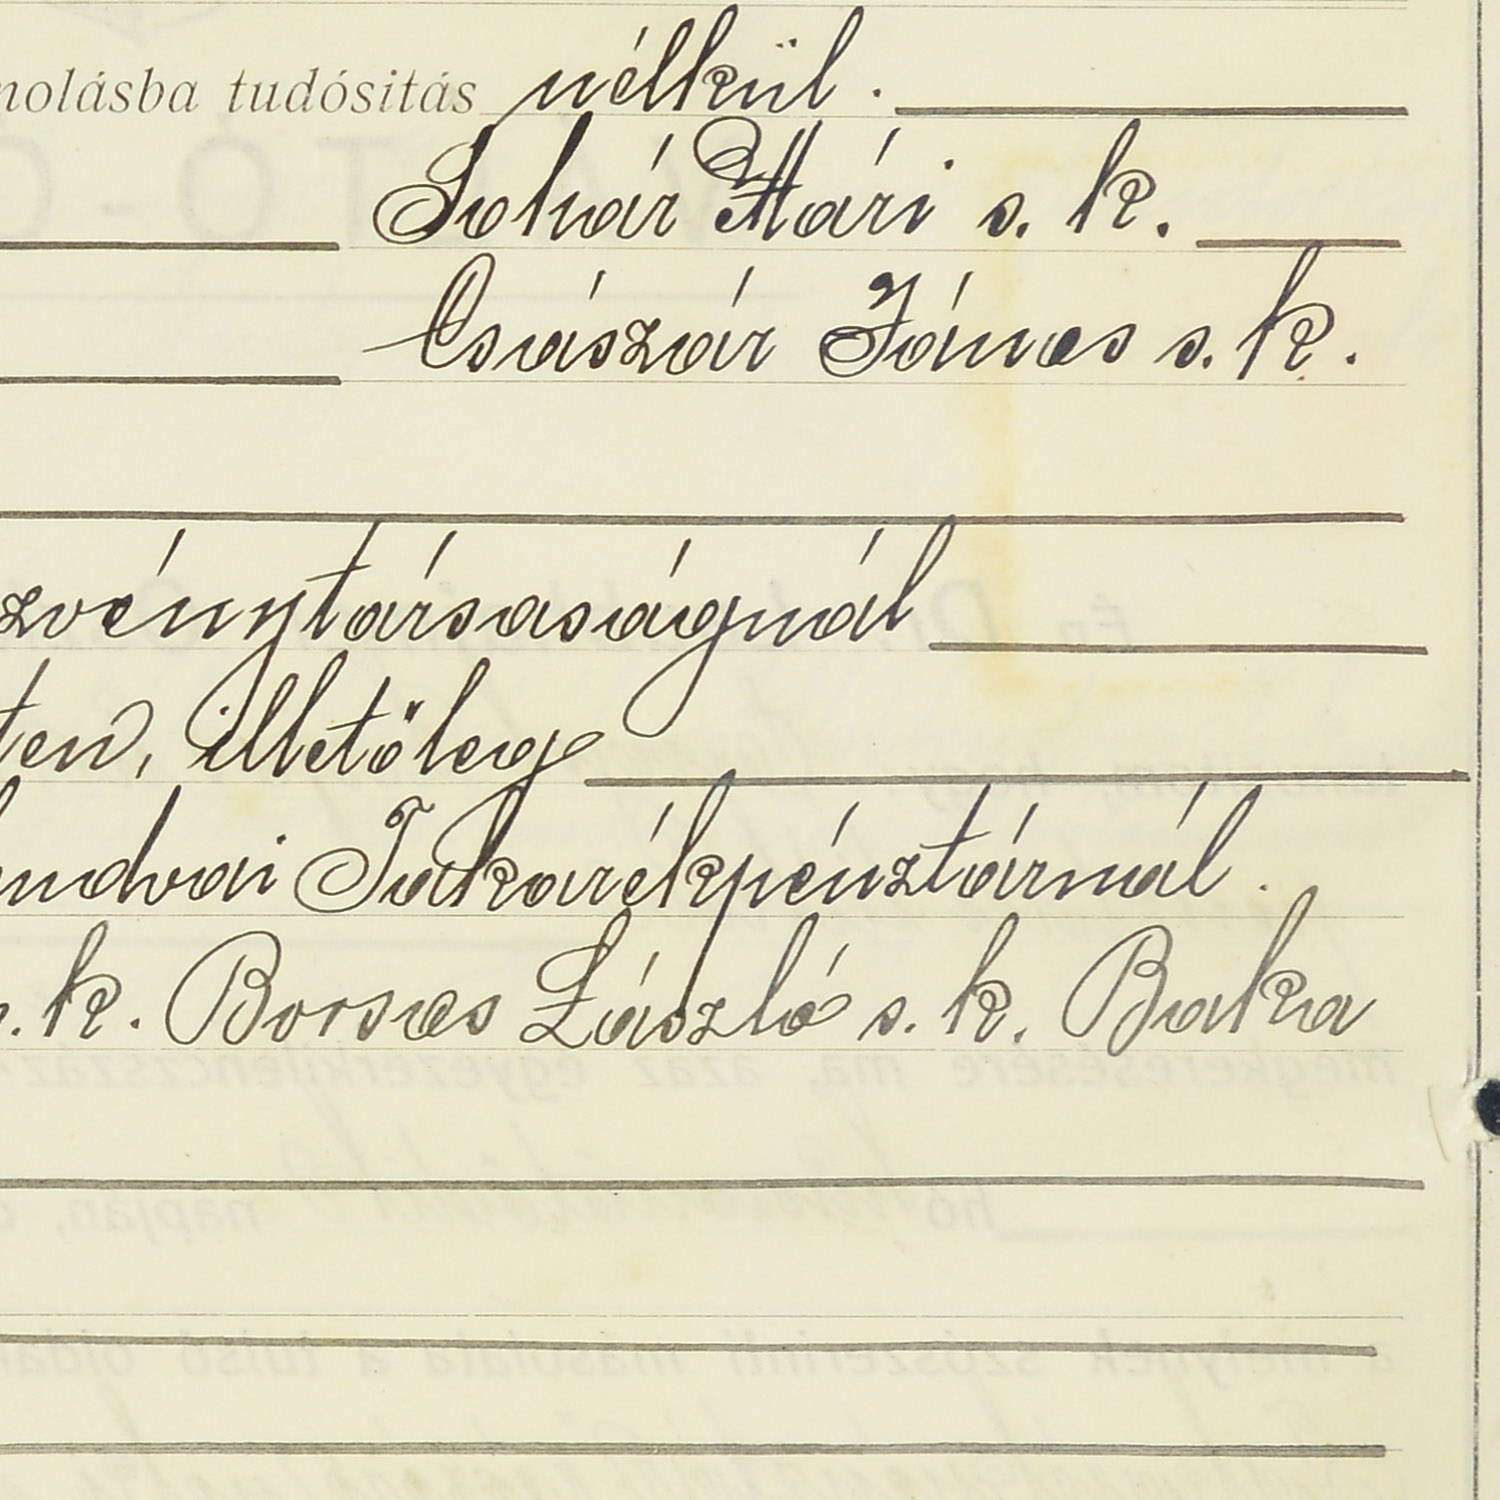 nolásba tudósitás nélkül.
Johár Mári s. k.
Császár János s. k.
zvénytársaságnál
ten, illetőleg
endvai Takarékpénztárnál.
s. k. Borsos László s. k. Baka